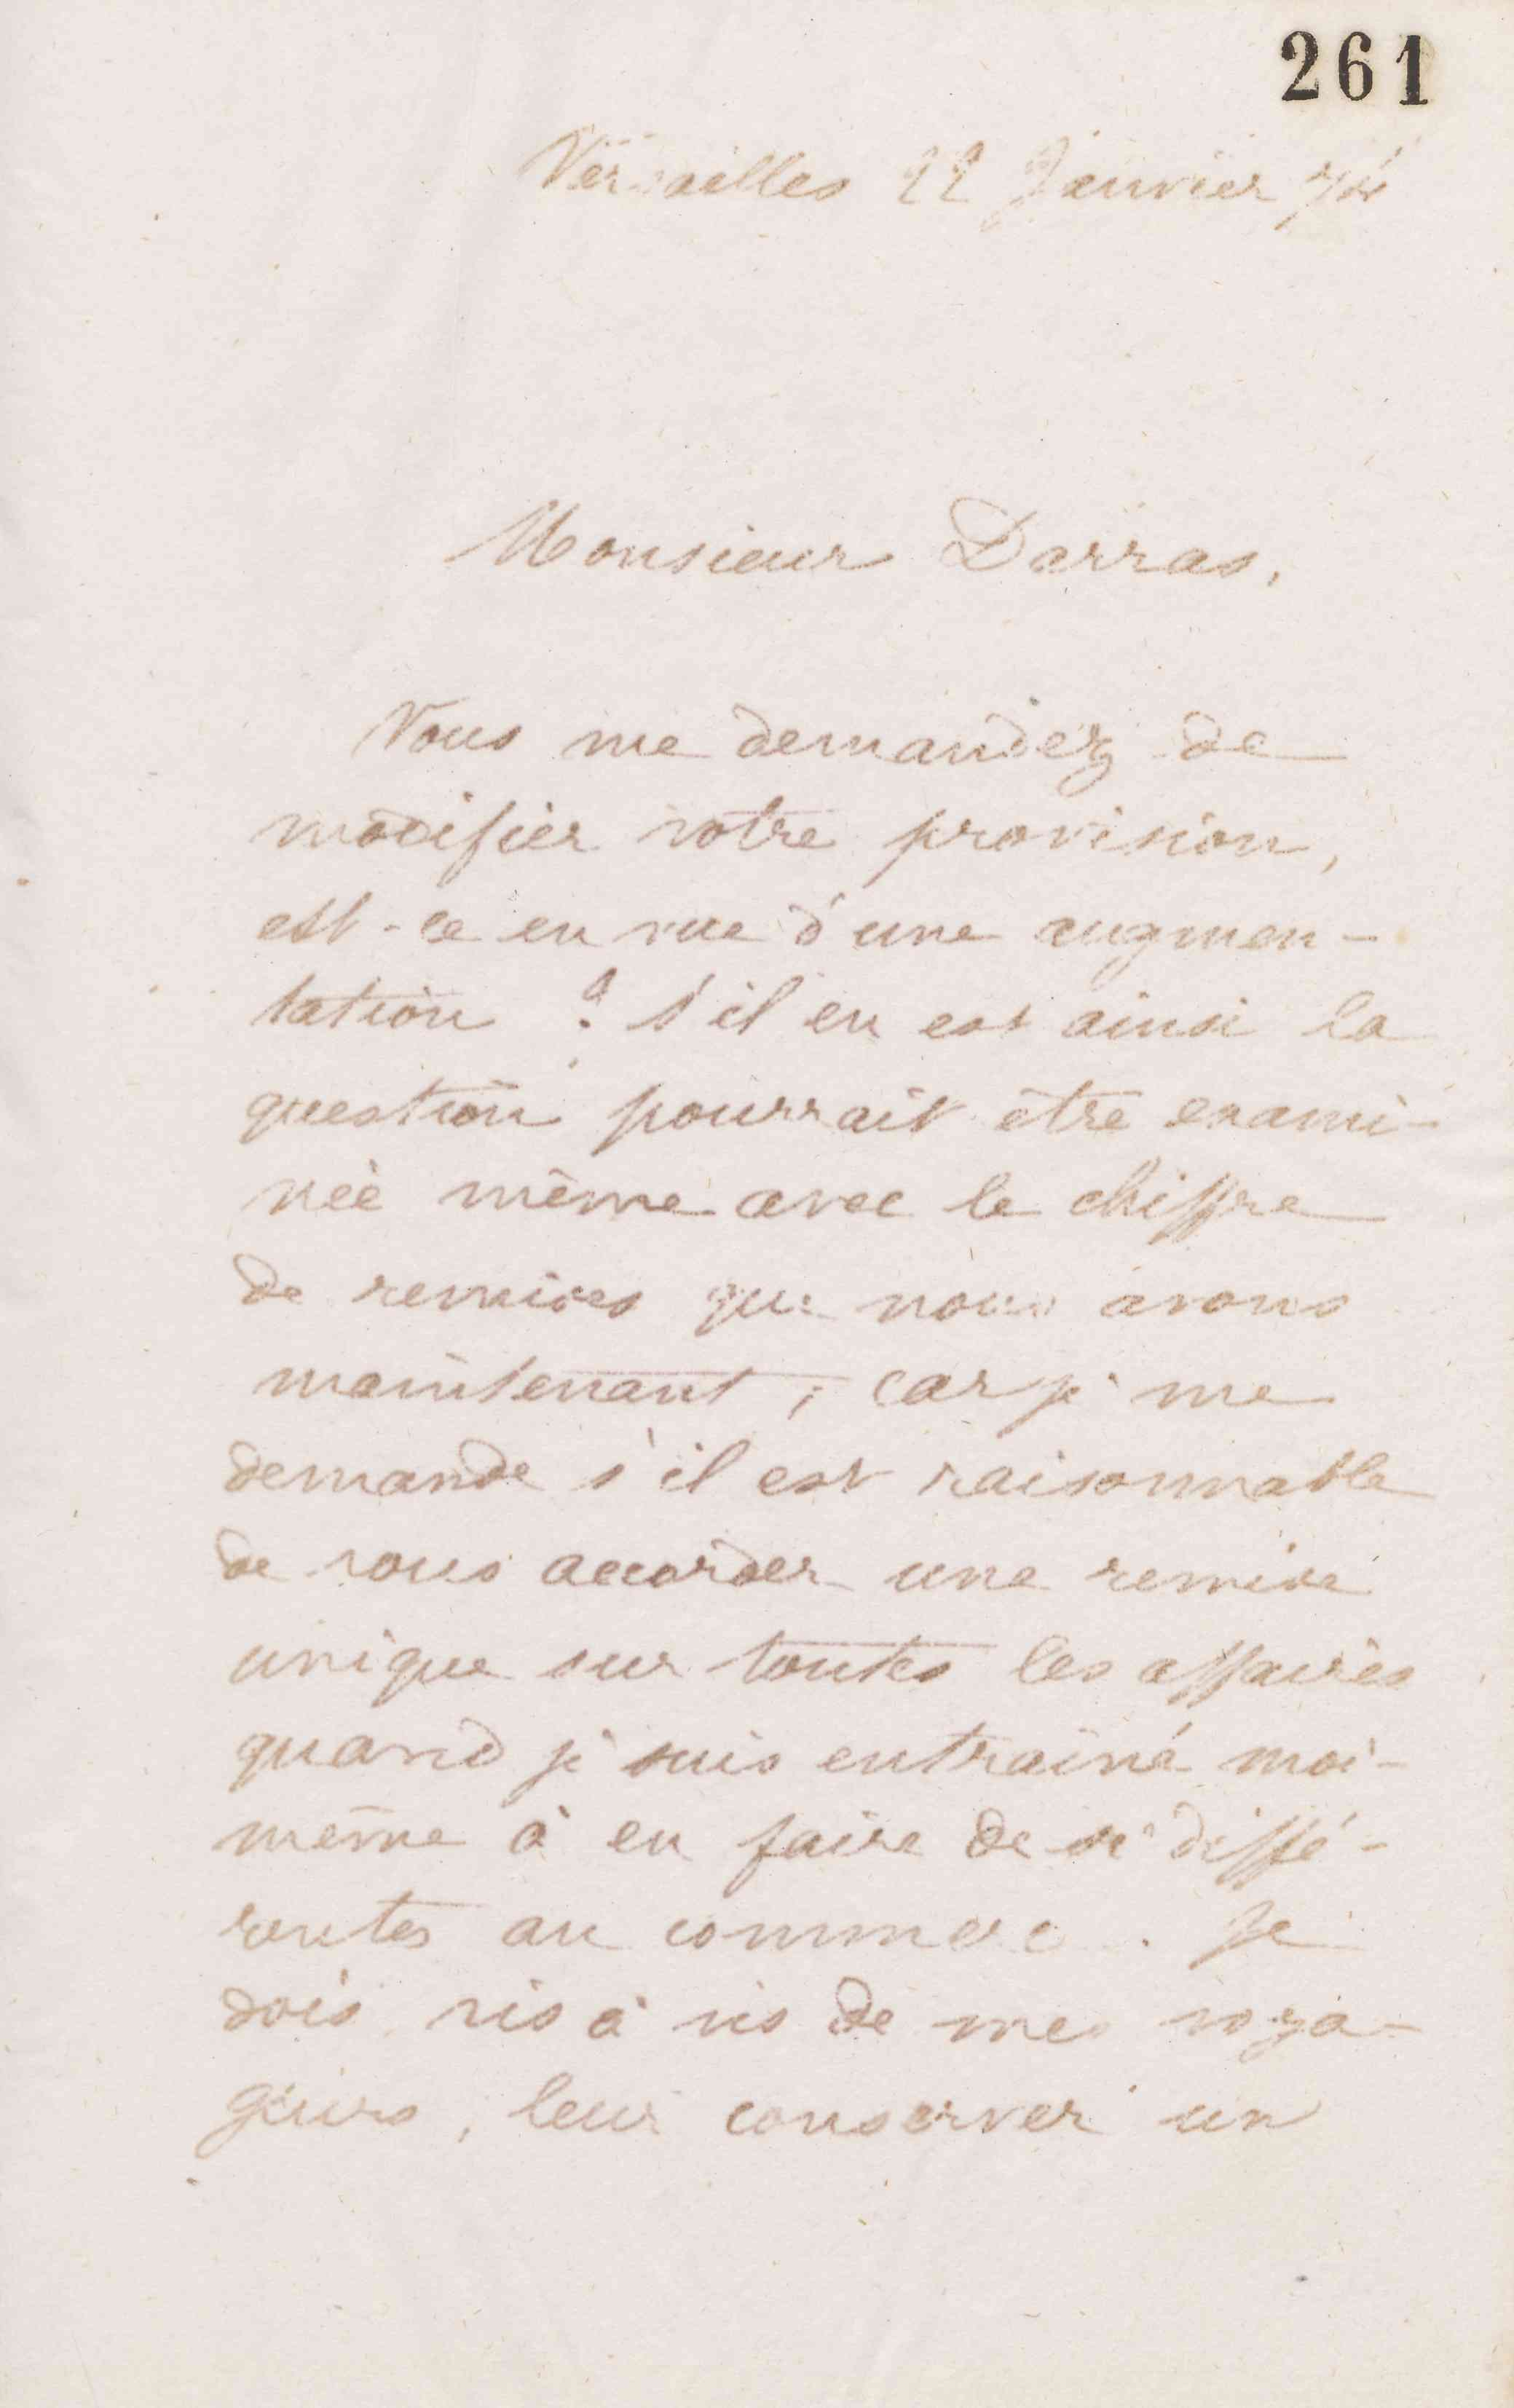 261
Versailles 22 Janvier 74
Monsieur Darras,
Vous me demandez de
modifier votre provision,
est-ce en vue d'une augmen-
tation ? s'il en est ainsi la
question pourrait être exami-
née même avec le chiffre
de remises que nous avons
maintenant ; car je me
demande s'il est raisonnable
de vous accorder une remise
unique sur toutes les affaires
quand je suis entrainé moi-
même à en faire de si diffé-
rentes au commerce. Je
dois vis à vis de mes voya-
geurs, leur conserver un